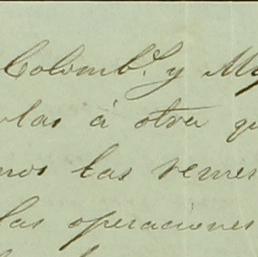 Colomb.ª y My
las á otra q
nos las remes
las operaciones